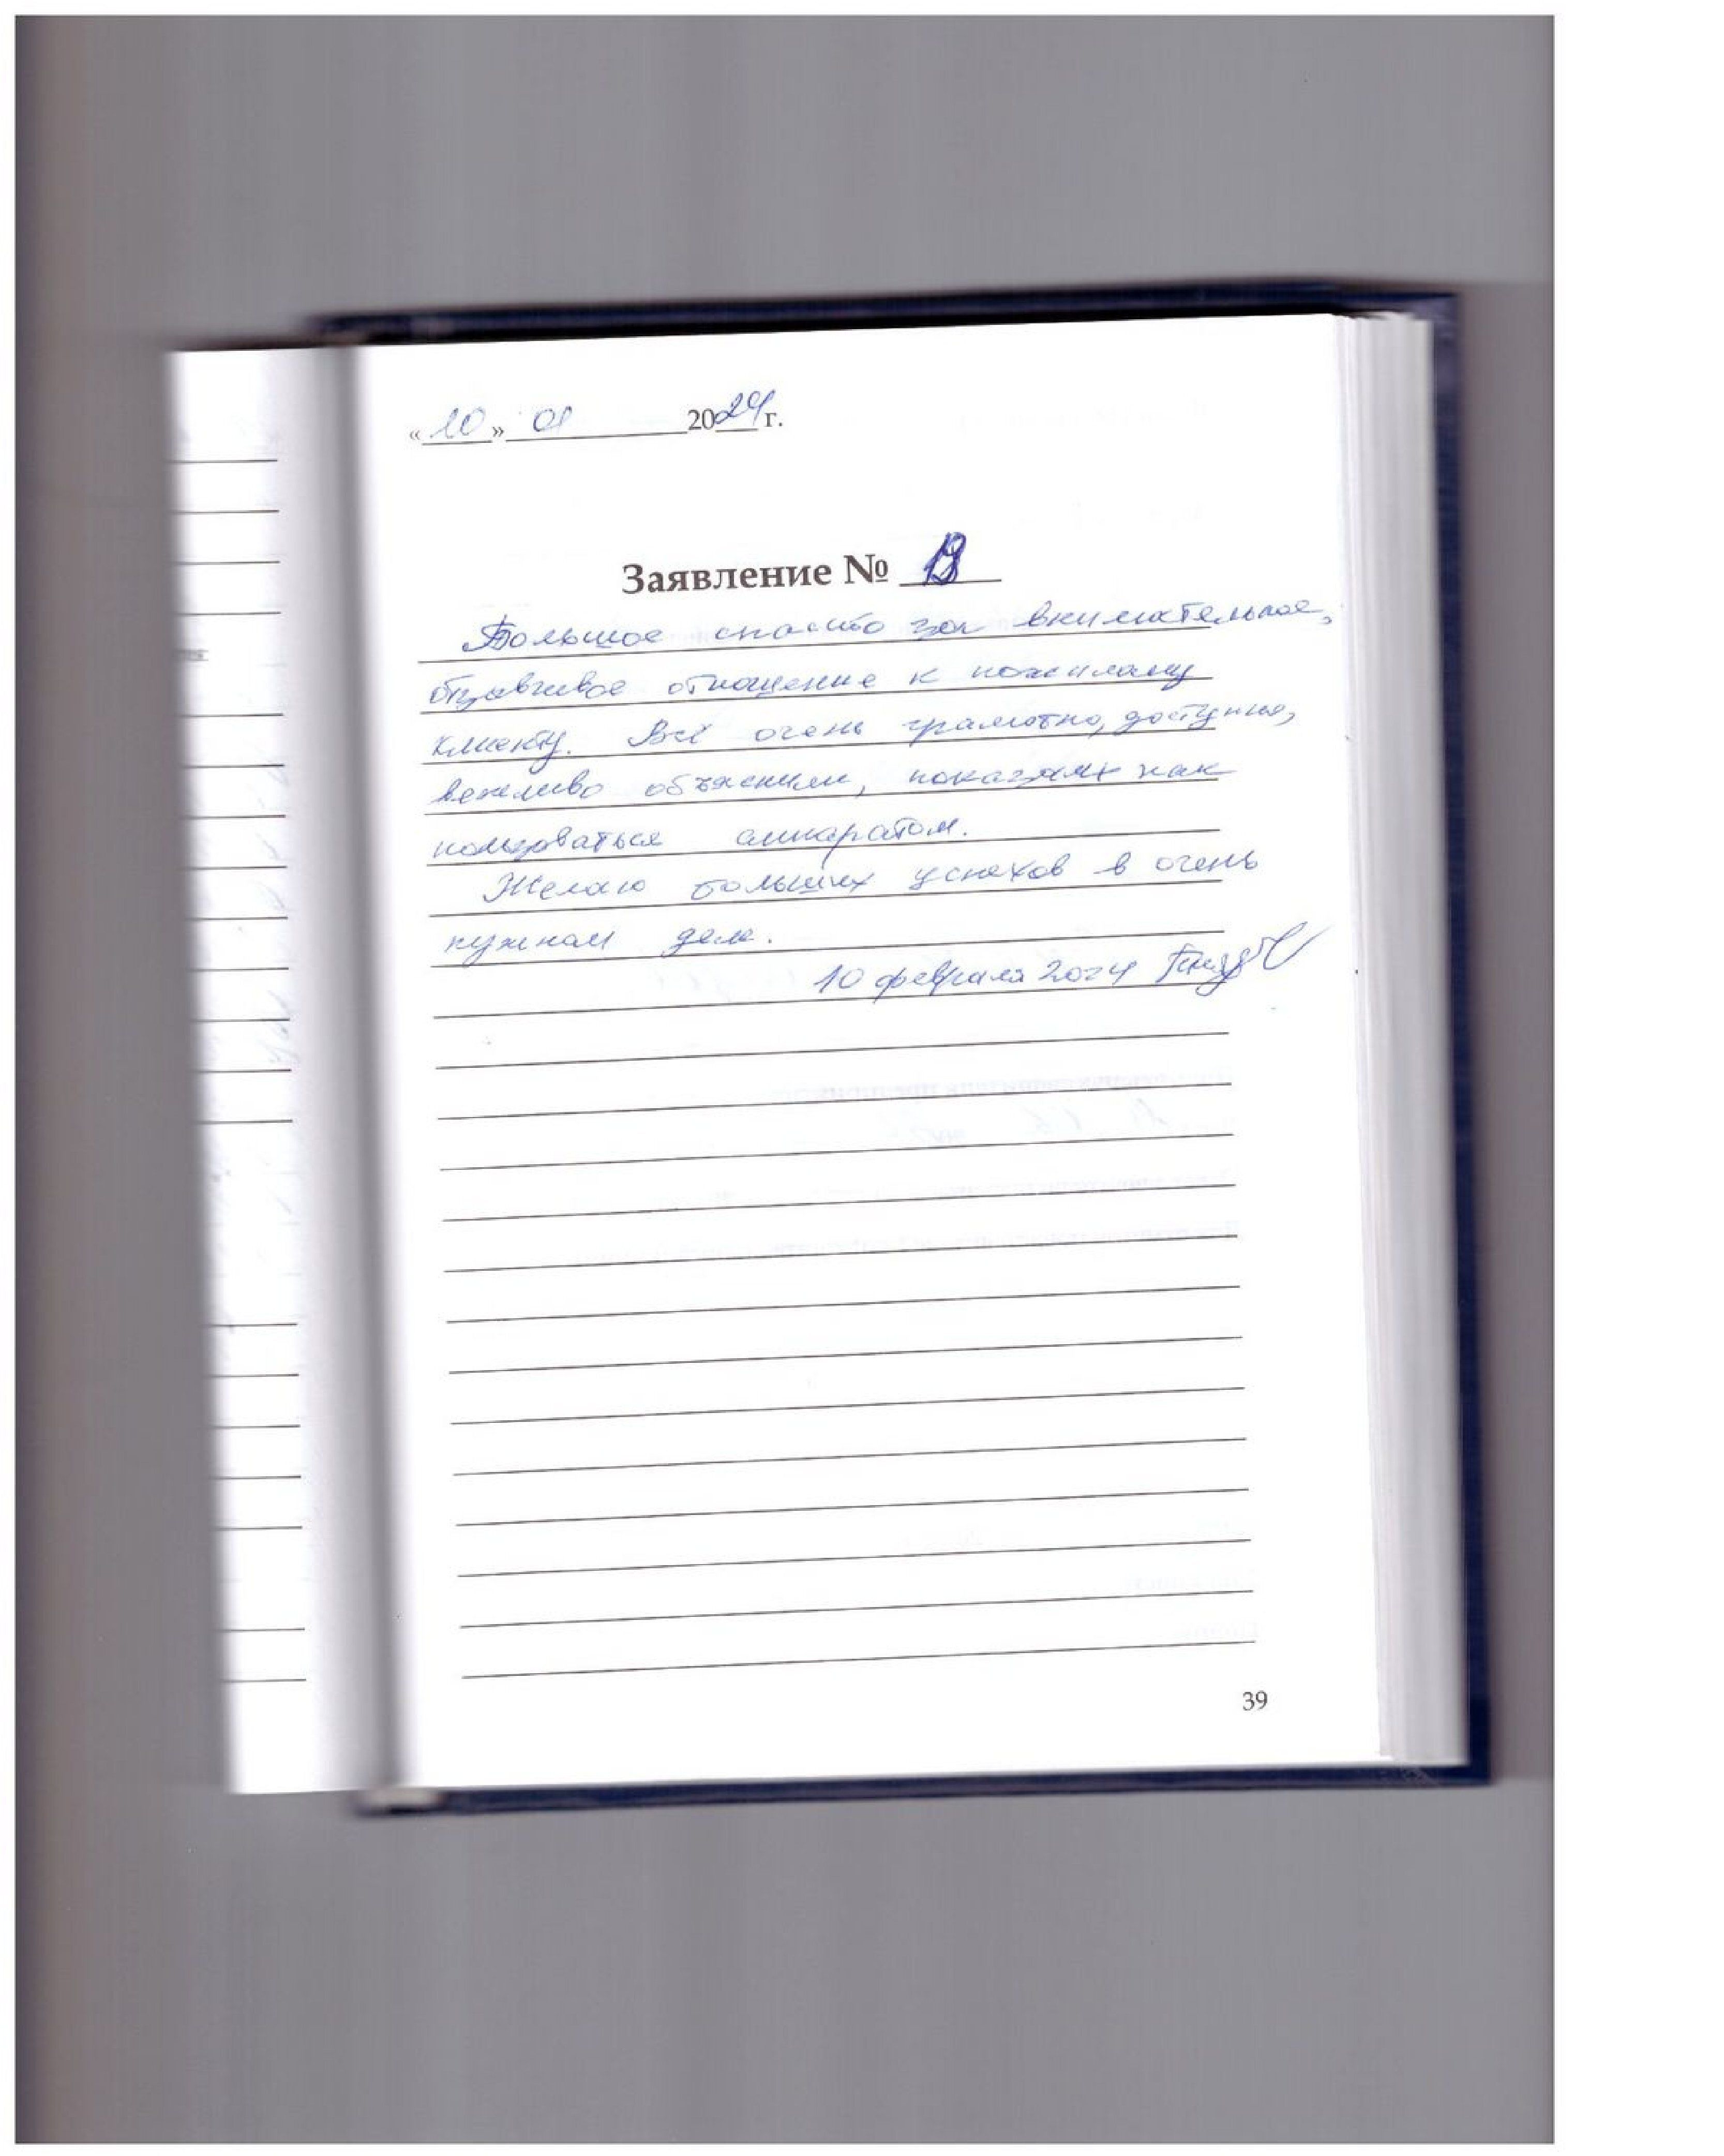 «10» 01 2024 г.
Заявление №
Большое спасибо за внимательное,
отзывчивое отношение к пожилому
клиенту. Всё очень грамотно, доступно,
вежливо объяснили, показали как
пользоваться аппаратом.
Желаю больших успехов в очень
нужном деле.
10 февраля 2024
39